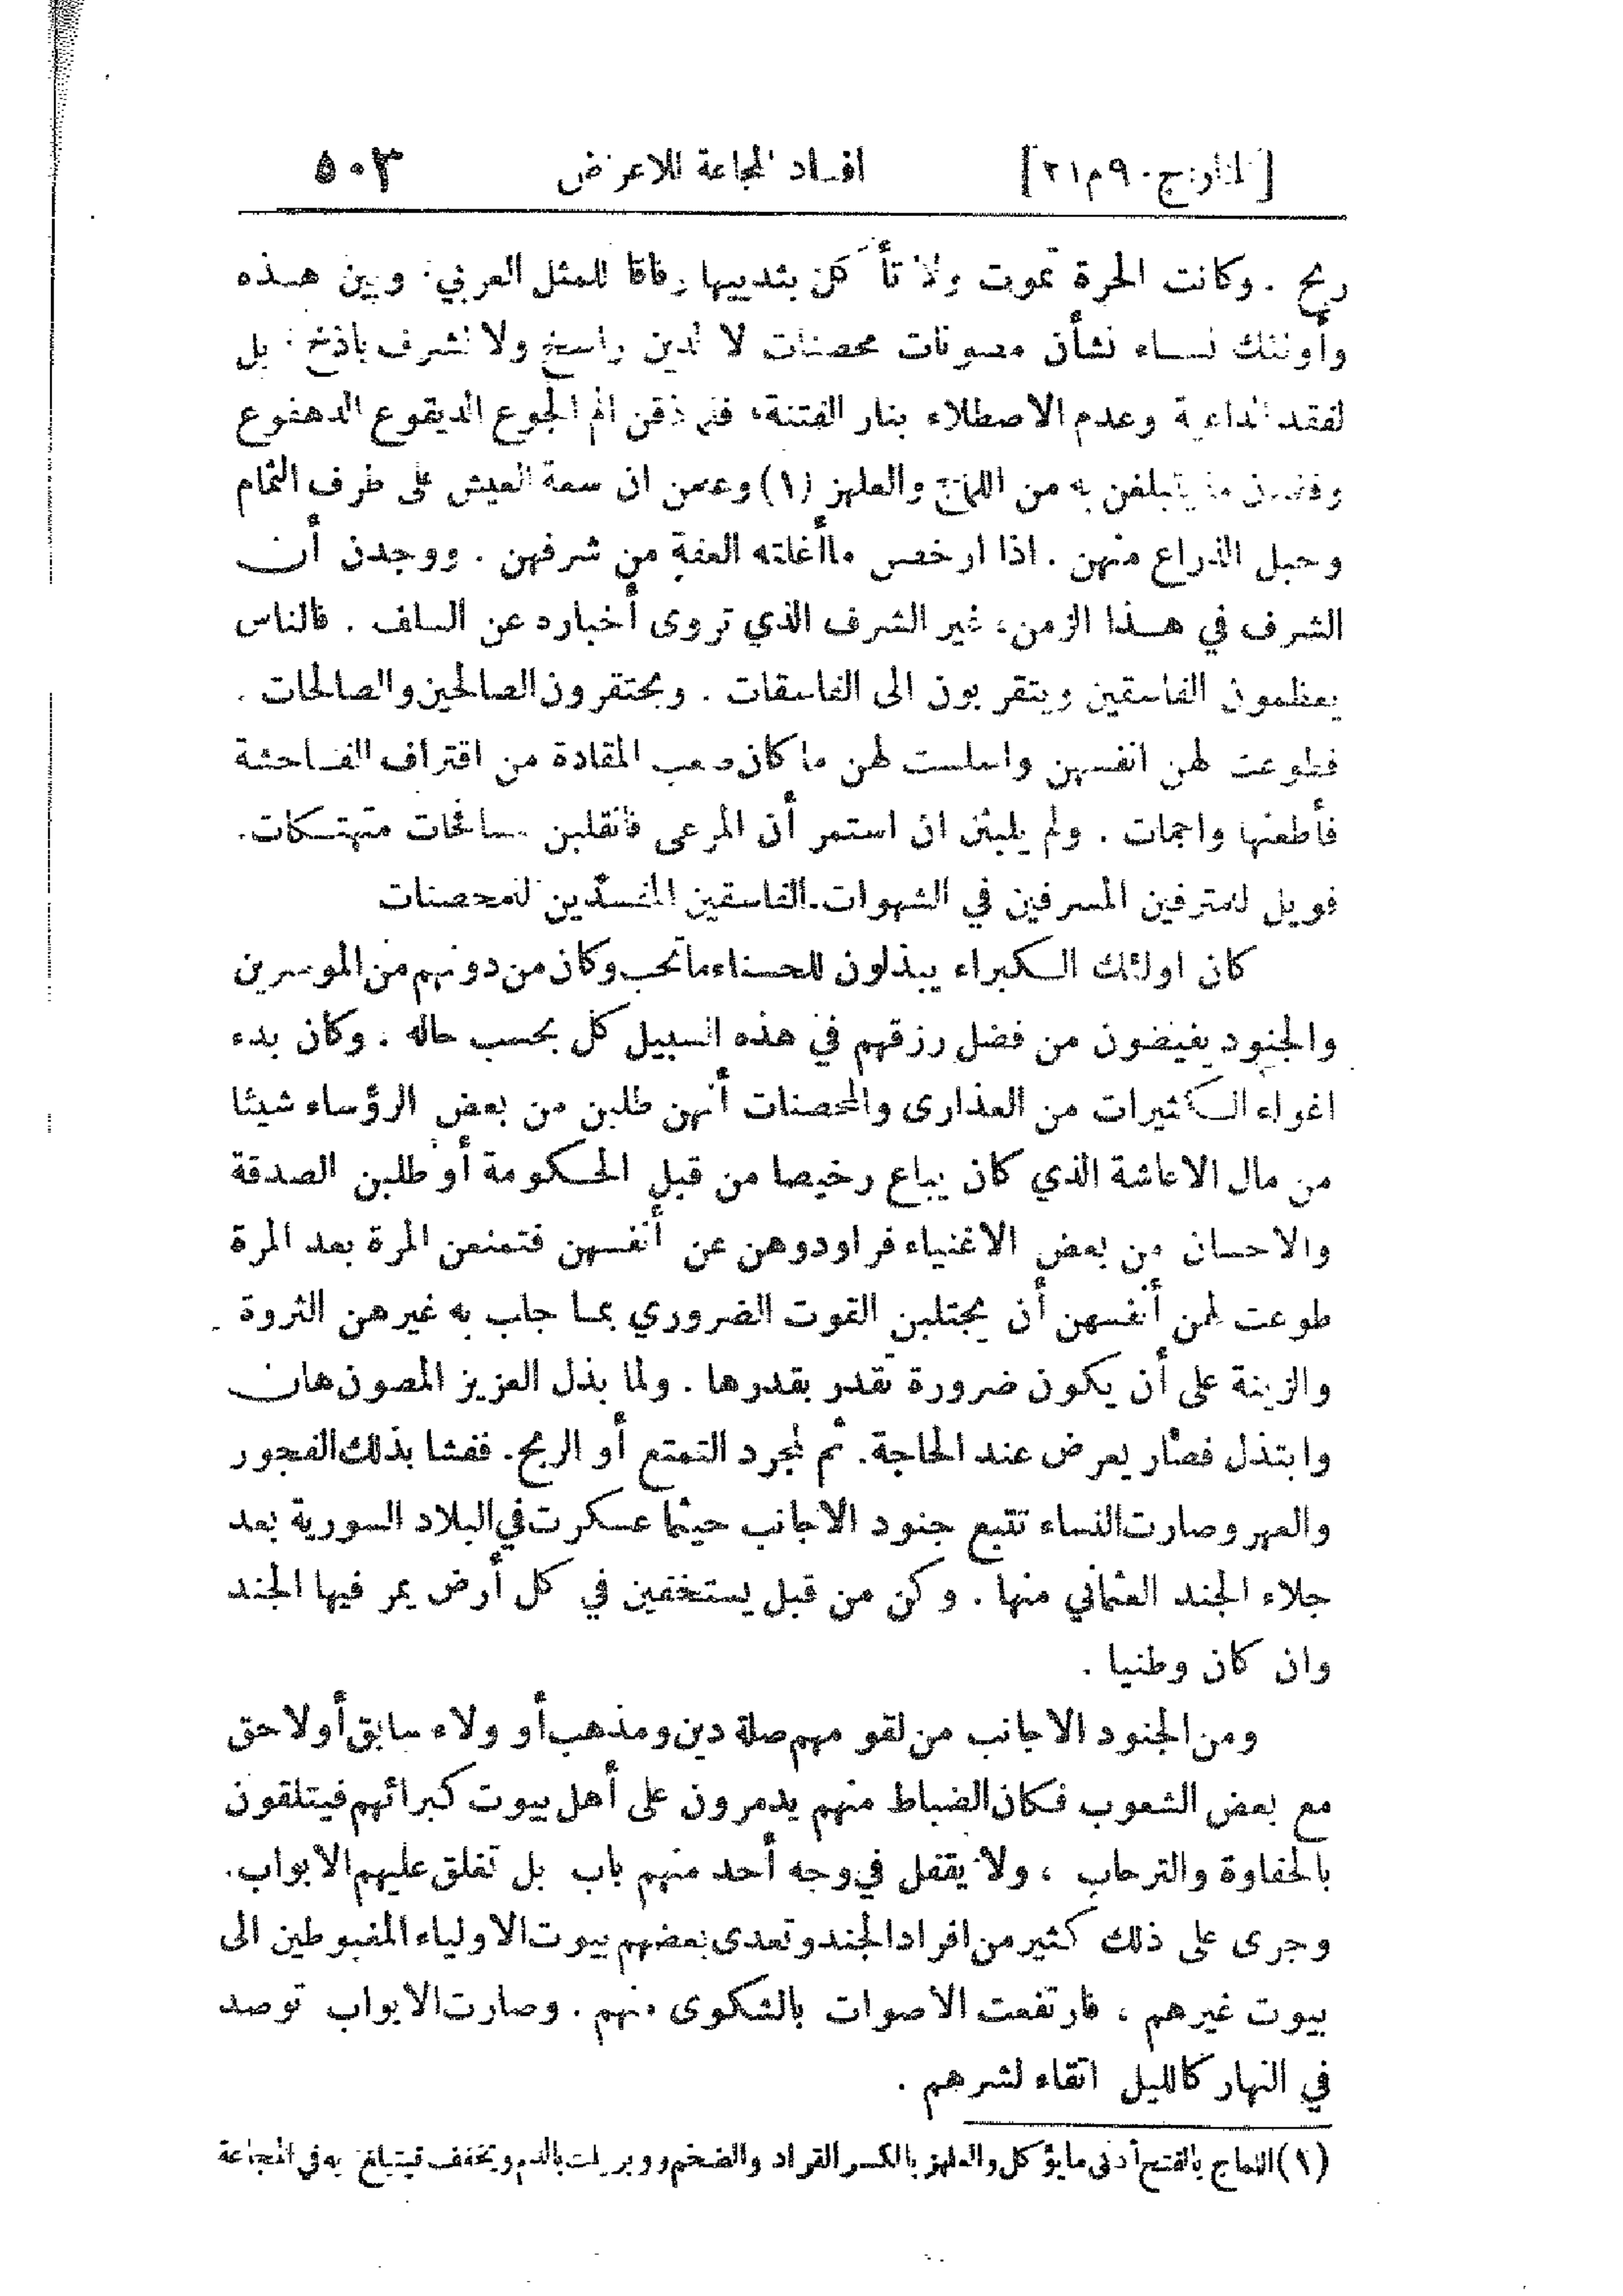 [المنار: ج ٩ م ٢١] افساد المجاعة للاعراض ٥٠٣
ريح . وكانت الحرة تموت ولا تأكل بثدييها وفاقا للمثل العربي . وبين هذه
وأولئك نساء نشأن مصونات محصنات لا لدين راسخ ولا لشرف باذخ ، بل
لفقد الداعية وعدم الاصطلاء بنار الفتنة ، فلم ذقن الم الجوع الديقوع الدهقوع
وفقدن ما يتبلغن به من اللماج والعلهز (١) وعلمن ان سعة العيش على طرف الثمام
وحبل الذراع منهن . اذا ارخصن ما أغلته العفة من شرفهن . ووجدن أن
الشرف في هذا الزمن ، غير الشرف الذي تروى أخباره عن السلف . فالناس
يعظمون الفاسقين ويتقربون الى الفاسقات . ويحتقرون الصالحين والصالحات .
فطوعت لهن انفسهن واسلست لهن ما كان صعب المقادة من اقتراف الفاحشة
فأطعنها واجمات . ولم يلبثن ان استمرأن المرعى فانقلبن مسافحات متهتكات .
فويل للمترفين المسرفين في الشهوات . الفاسقين المفسدين للمحصنات
كان اولئك الكبراء يبذلون للحسناء ما تحب وكان من دونهم من الموسرين
والجنود يفيضون من فضل رزقهم في هذه السبيل كل بحسب حاله . وكان بدء
اغواء الكثيرات من العذارى والمحصنات أنهن طلبن من بعض الرؤساء شيئا
من مال الاعاشة الذي كان يباع رخيصا من قبل الحكومة أو طلبن الصدقة
والاحسان من بعض الاغنياء فراودوهن عن أنفسهن فتمنعن المرة بعد المرة
طوعت لهن أنفسهن أن يجتلبن القوت الضروري بما جلب به غيرهن الثروة
والزينة على أن يكون ضرورة تقدر بقدرها . ولما بذل العزيز المصون هان
وابتذل فصار يعرض عند الحاجة . ثم لمجرد التمتع أو الربح . ففشا بذلك الفجور
والعهر وصارت النساء تتبع جنود الاجانب حيثما عسكرت في البلاد السورية بعد
جلاء الجند العثماني منها . وكن من قبل يستخفين في كل أرض يمر فيها الجند
وان كان وطنيا .
ومن الجنود الاجانب من لقومهم صلة دين ومذهب أو ولاء سابق أو لاحق
مع بعض الشعوب فكان الضباط منهم يدمرون على أهل بيوت كبرائهم فيتلقون
بالحفاوة والترحاب ، ولا يقفل في وجه أحد منهم باب بل تغلق عليهم الابواب .
وجرى على ذلك كثير من افراد الجند وتعدى بعضهم بيوت الاولياء المغبوطين الى
بيوت غيرهم ، فارتفعت الاصوات بالشكوى منهم . وصارت الابواب توصد
في النهار كالليل اتقاء لشرهم .
(١) اللماج بالفتح أدنى ما يؤكل والعلهز بالكسر القراد والضخم ووبر يلت بالدم ويجفف فيتبلغ به في المجاعة